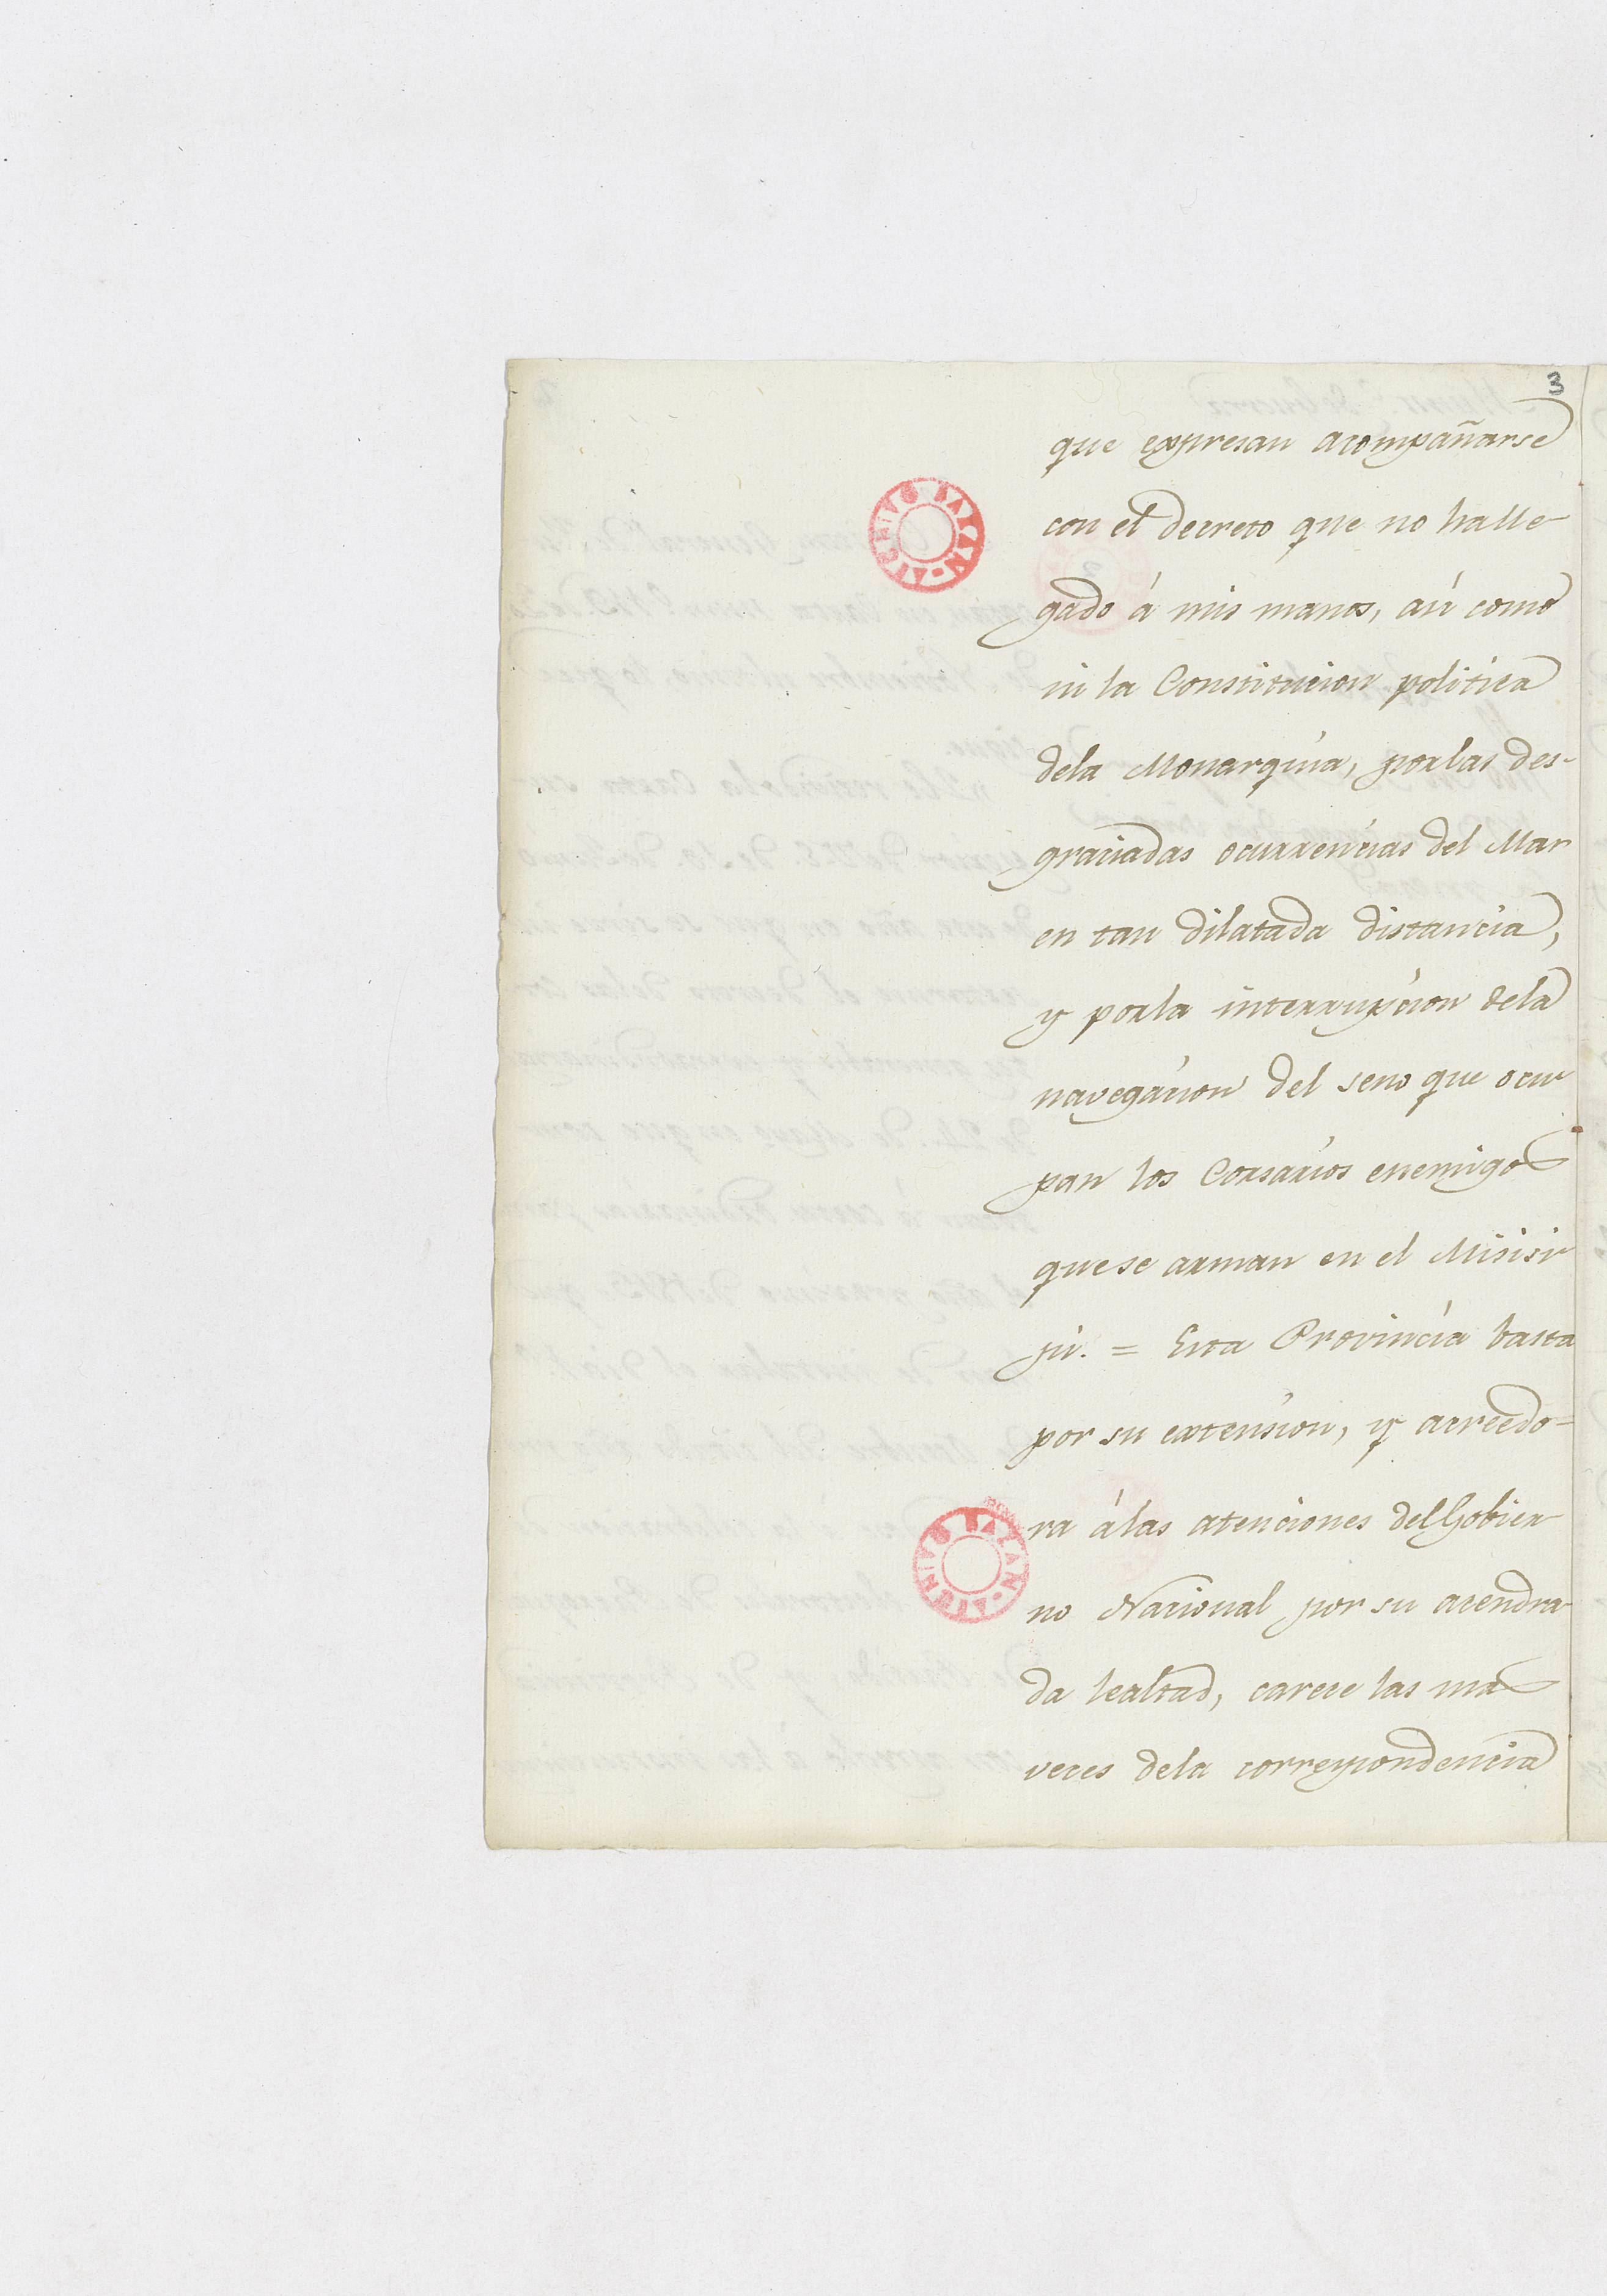 3
que expresan acompañarse
con el decreto que no ha lle-
gado á mis manos, así como
ni la Constitucion politica
dela Monarquia, por las des-
graciadas ocurrencias del Mar
en tan dilatada distancia,
y por la interrupcion dela
navegacion del seno que ocu-
pan los Corsarios enemigos
que se arman en el Misisi-
pi. = Esta Provincia basta
por su extension, y acreedo-
ra á las atenciones del Gobier-
no Nacional por su acendra-
da lealtad, carece las mas
veces dela correspondencia